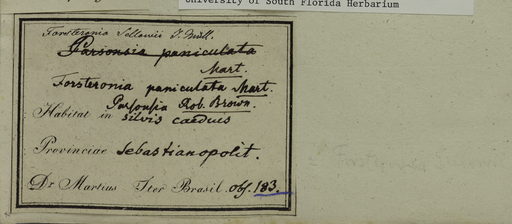 University of South Florida Herbarium
Forsteronia Sellowii J. Müll.
Parsonsia paniculata
Mart.
Forsteronia paniculata Mart.
Parsonsia Rob. Brown.
Habitat in silvis caeduis
Provinciae Sebastianopolit.
Dr Martius Iter Brasil. obs. 183.